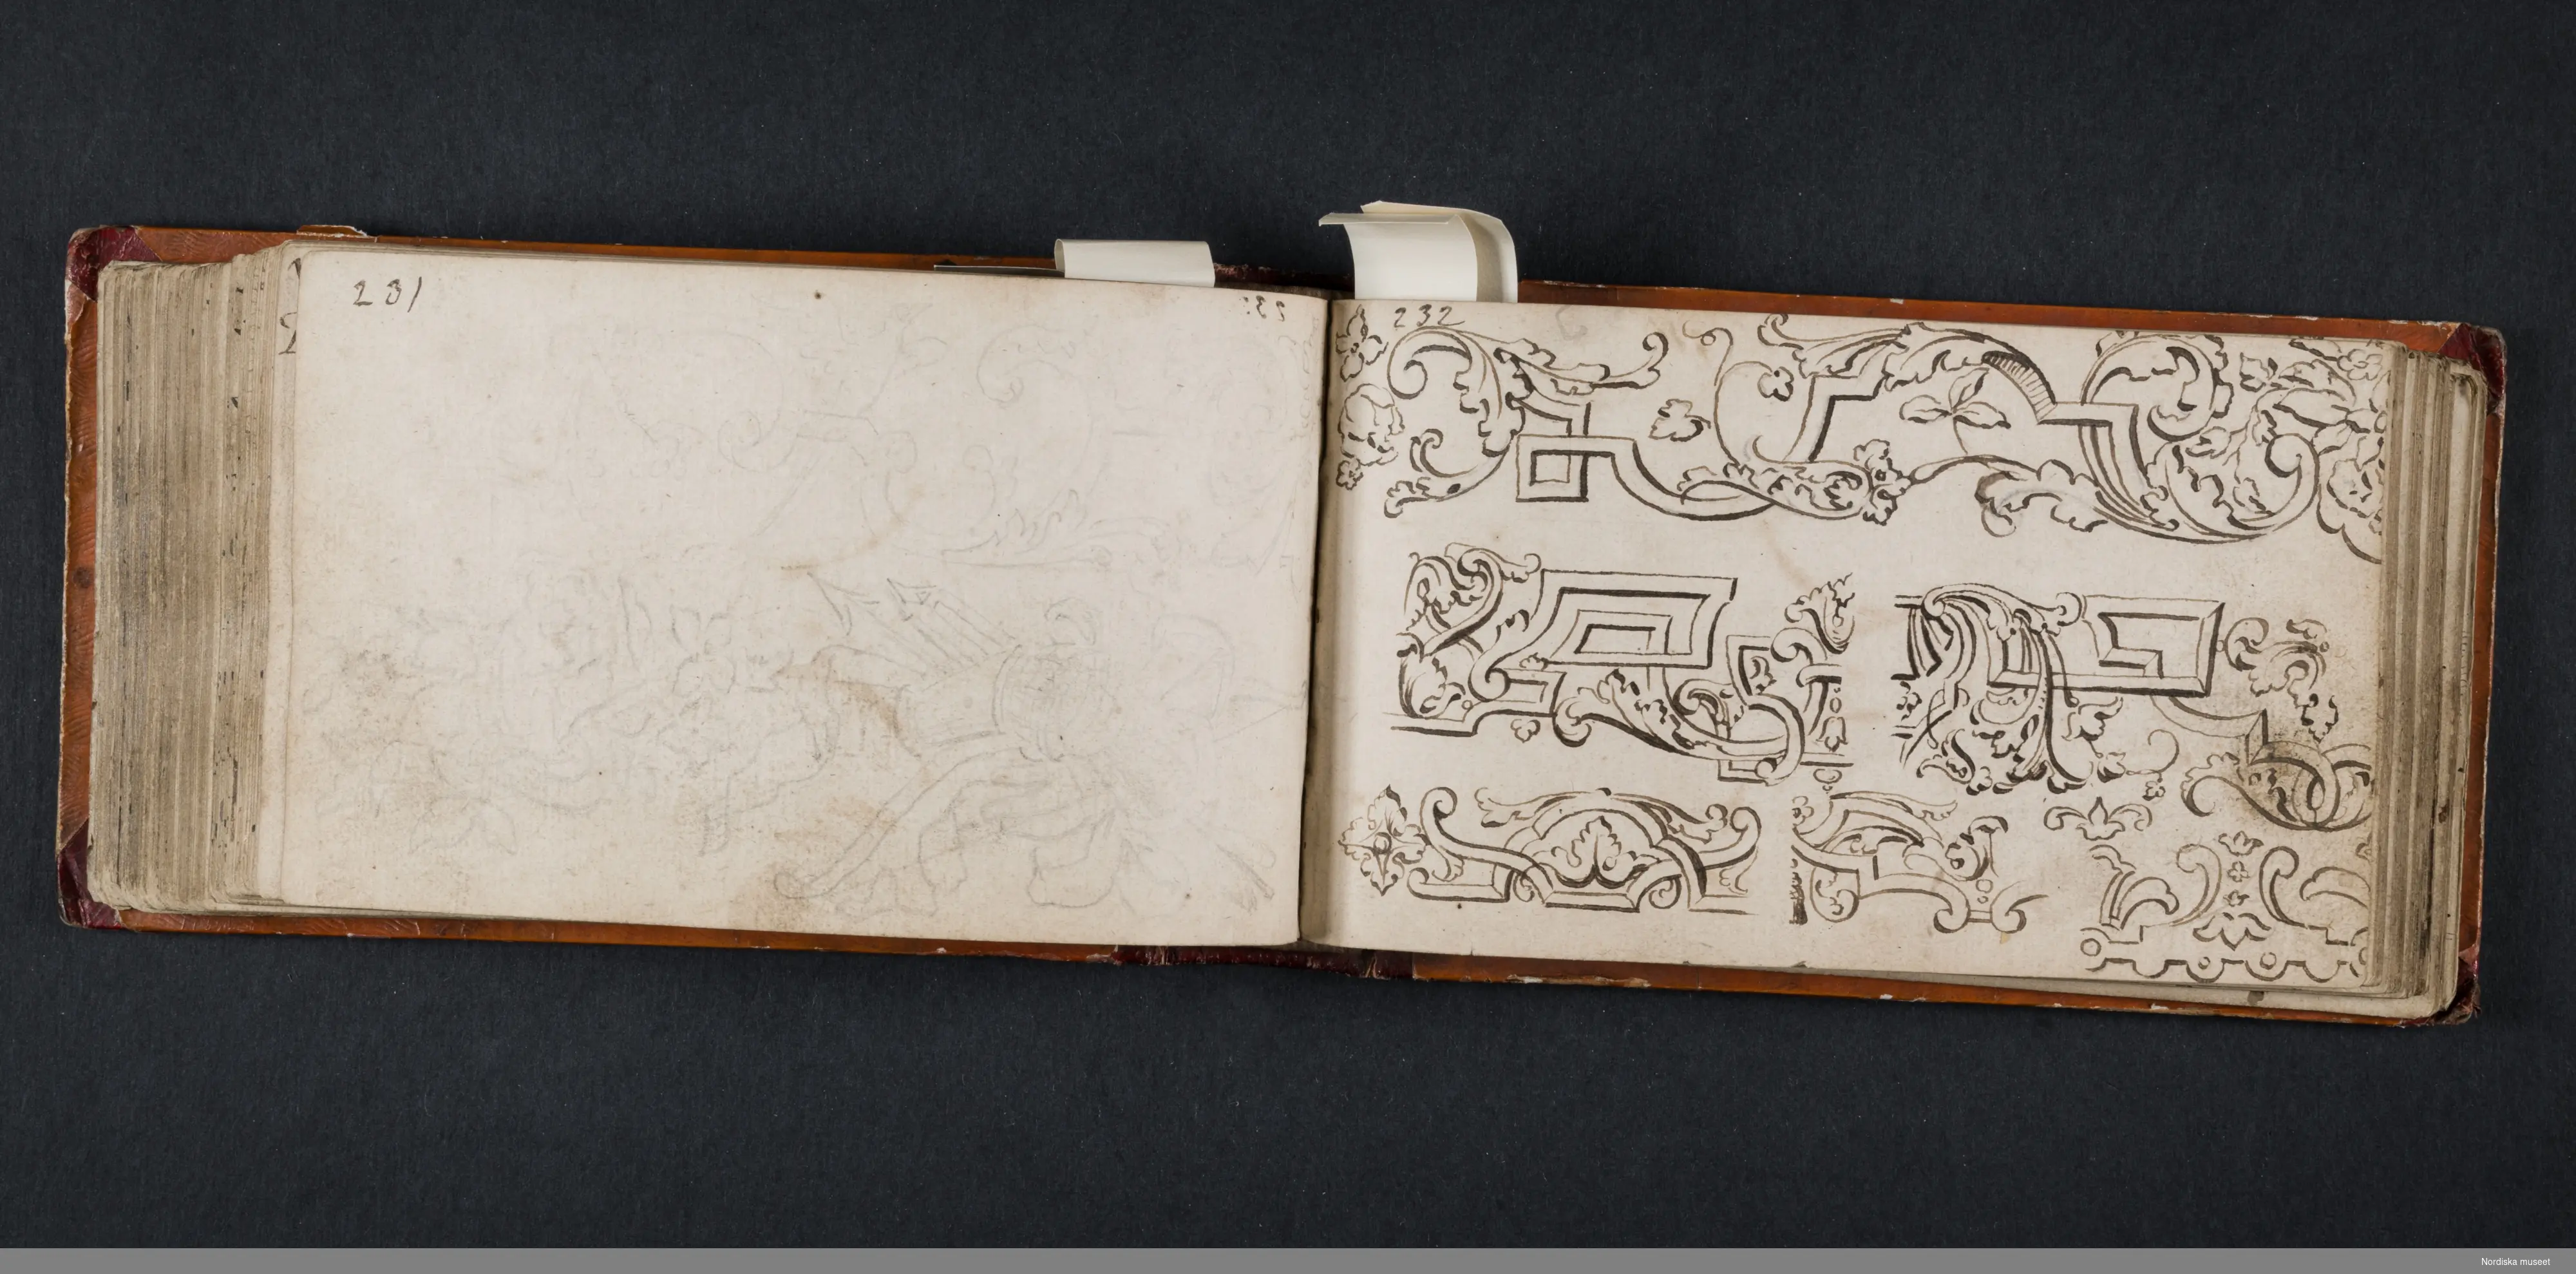 231
232
Nordiska museet